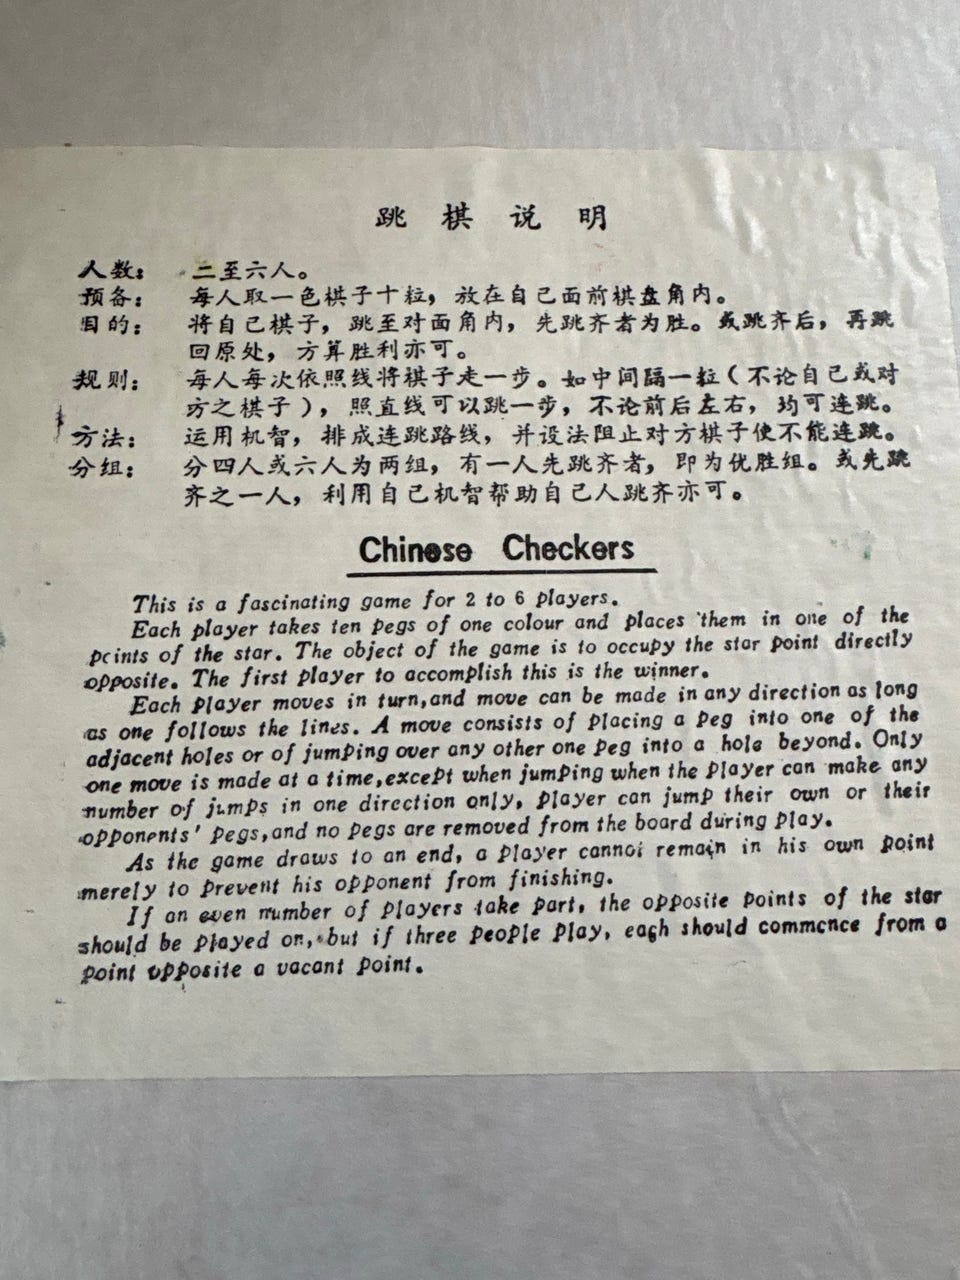 跳棋说明
人数： 二至六人。
预备： 每人取一色棋子十粒，放在自己面前棋盘角内。
目的： 将自己棋子，跳至对面角内，先跳齐者为胜。或跳齐后，再跳
回原处，方算胜利亦可。
规则： 每人每次依照线将棋子走一步。如中间隔一粒（不论自己或对
方之棋子），照直线可以跳一步，不论前后左右，均可连跳。
方法： 运用机智，排成连跳路线，并设法阻止对方棋子使不能连跳。
分组： 分四人或六人为两组，有一人先跳齐者，即为优胜组。或先跳
齐之一人，利用自己机智帮助自己人跳齐亦可。
Chinese Checkers
This is a fascinating game for 2 to 6 players.
Each player takes ten pegs of one colour and places them in one of the
points of the star. The object of the game is to occupy the star point directly
opposite. The first player to accomplish this is the winner.
Each player moves in turn,and move can be made in any direction as long
as one follows the lines. A move consists of placing a peg into one of the
adjacent holes or of jumping over any other one peg into a hole beyond. Only
one move is made at a time,except when jumping when the player can make any
number of jumps in one direction only, player can jump their own or their
opponents' pegs,and no pegs are removed from the board during play.
As the game draws to an end, a player cannot remain in his own point
merely to prevent his opponent from finishing.
If an even number of players take part, the opposite points of the star
should be played on, but if three people play, each should commence from a
point opposite a vacant point.